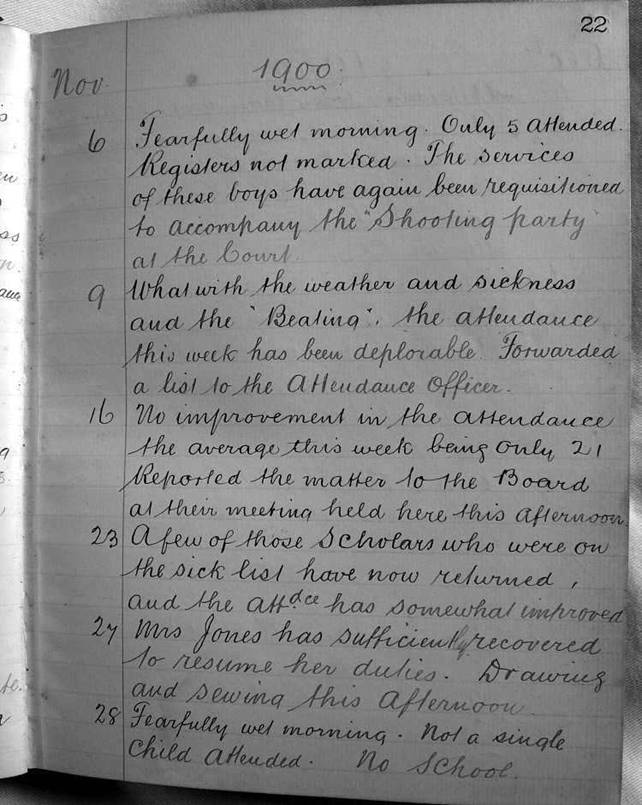 22
Nov 1900.
6 Fearfully wet morning. Only 5 attended.
Registers not marked. The services
of these boys have again been requisitioned
to accompany the "Shooting party"
at the Court.
9 What with the weather and sickness
and the "Beating", the attendance
this week has been deplorable. Forwarded
a list to the Attendance Officer.
16 No improvement in the attendance
the average this week being only 21
Reported the matter to the Board
at their meeting held here this afternoon.
23 A few of those Scholars who were on
the sick list have now returned,
and the attdce has somewhat improved
27 Mrs Jones has sufficiently recovered
to resume her duties. Drawing
and sewing this Afternoon.
28 Fearfully wet morning. Not a single
Child Attended. No School.